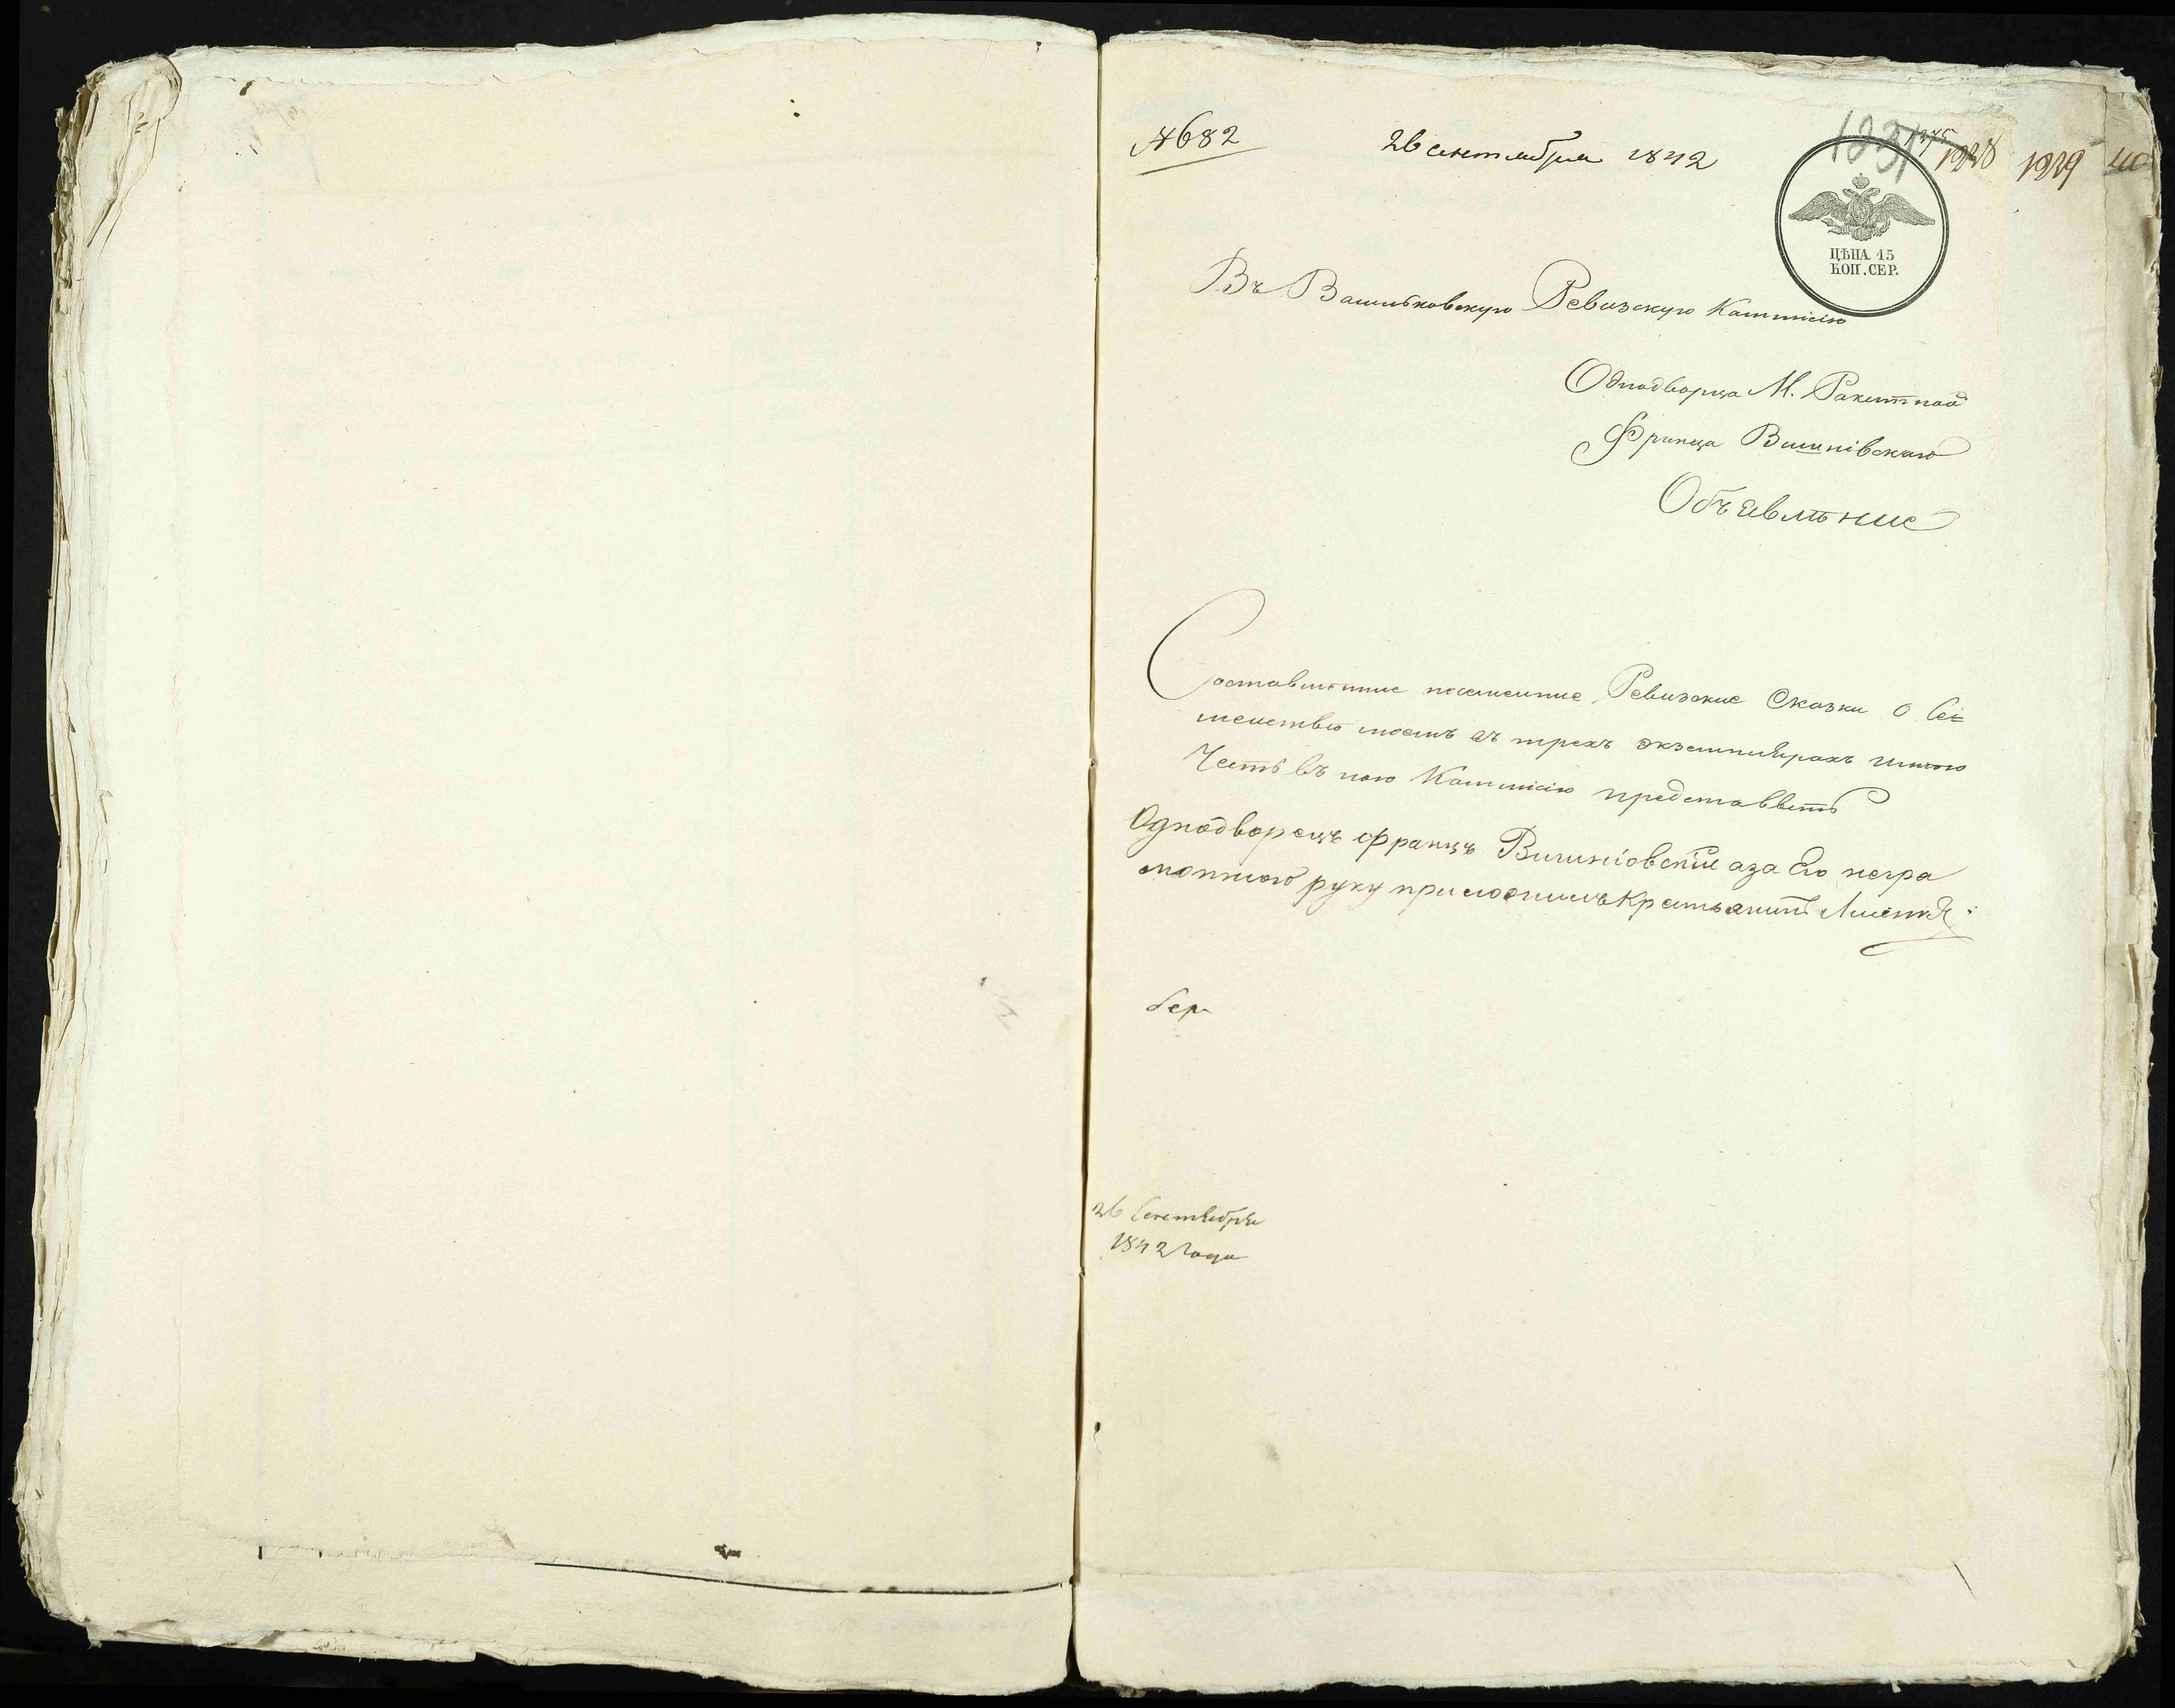 № 682
26 сентября 1842
1231
1929
ЦѢНА 15
КОП. СЕР.
Въ Васильковскую Ревизскую Коммисію
Однодворца М. Ракитной
Франца Вишнiовскаго
Объевление
Составленние посемение Ревизские Сказки о Се=
меистве моемъ въ трехъ экземплярахъ имею
Честь въ Коммисію представить
Однодворецъ Францъ Вишніовскій аза Его негра
мотного руку приложилъ
26 Сентября
1842 Года